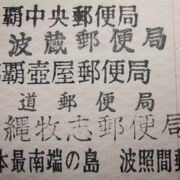 覇中央郵便局
波蔵郵便局
覇壺屋郵便局
道郵便局
縄牧志郵便局
本最南端の島 波照間郵